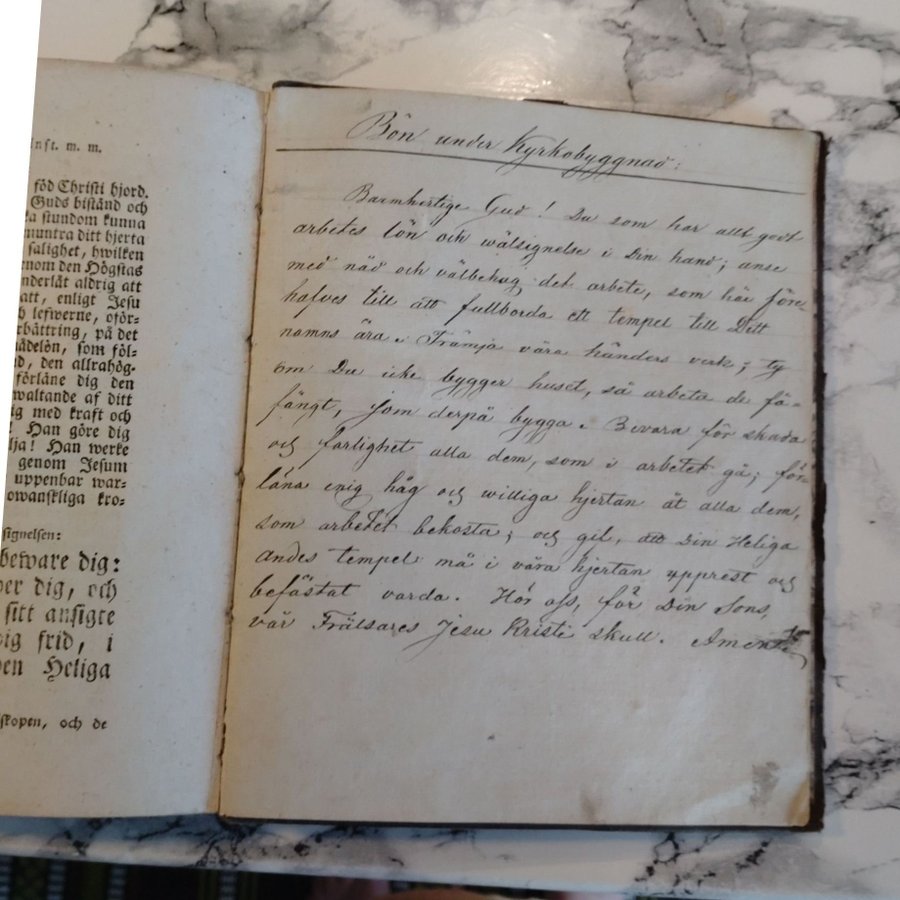 Inst. m. m.
föd Christi hjord.
Guds bistånd och
stundom kunna
muntra ditt hjerta
salighet, hwilken
genom den Högstas
nderlåt aldrig att
att, enligt Jesu
lefwerne, oför-
rbättring, på det
nådelön, som föl-
d, den allrahög-
förläne dig den
waltande af ditt
ig med kraft och
Han göre dig
lja! Han werke
genom Jesum
uppenbar war-
owanskliga kro-
signelsen:
beware dig:
er dig, och
sitt ansigte
dig frid, i
en Heliga
skopen, och de
Bön under Kyrkobyggnad:
Barmhertige Gud! Du som har allt godt
arbetes lön och wälsignelse i Din hand; anse
med nåd och välbehag det arbete, som här före-
hafves till att fullborda ett tempel till Ditt
namns ära. Främja våra händers verk; ty
om Du icke bygger huset, så arbeta de få-
fängt, som derpå bygga. Bevara för skada
och farlighet alla dem, som i arbetet gå; för-
läna enig håg och williga hjertan åt alla dem,
som arbetet bekosta; och gif, att Din Heliga
andes tempel må i våra hjertan upprest och
befästat varda. Hör oss, för Din Sons,
vår Frälsares Jesu Kristi skull. Amen